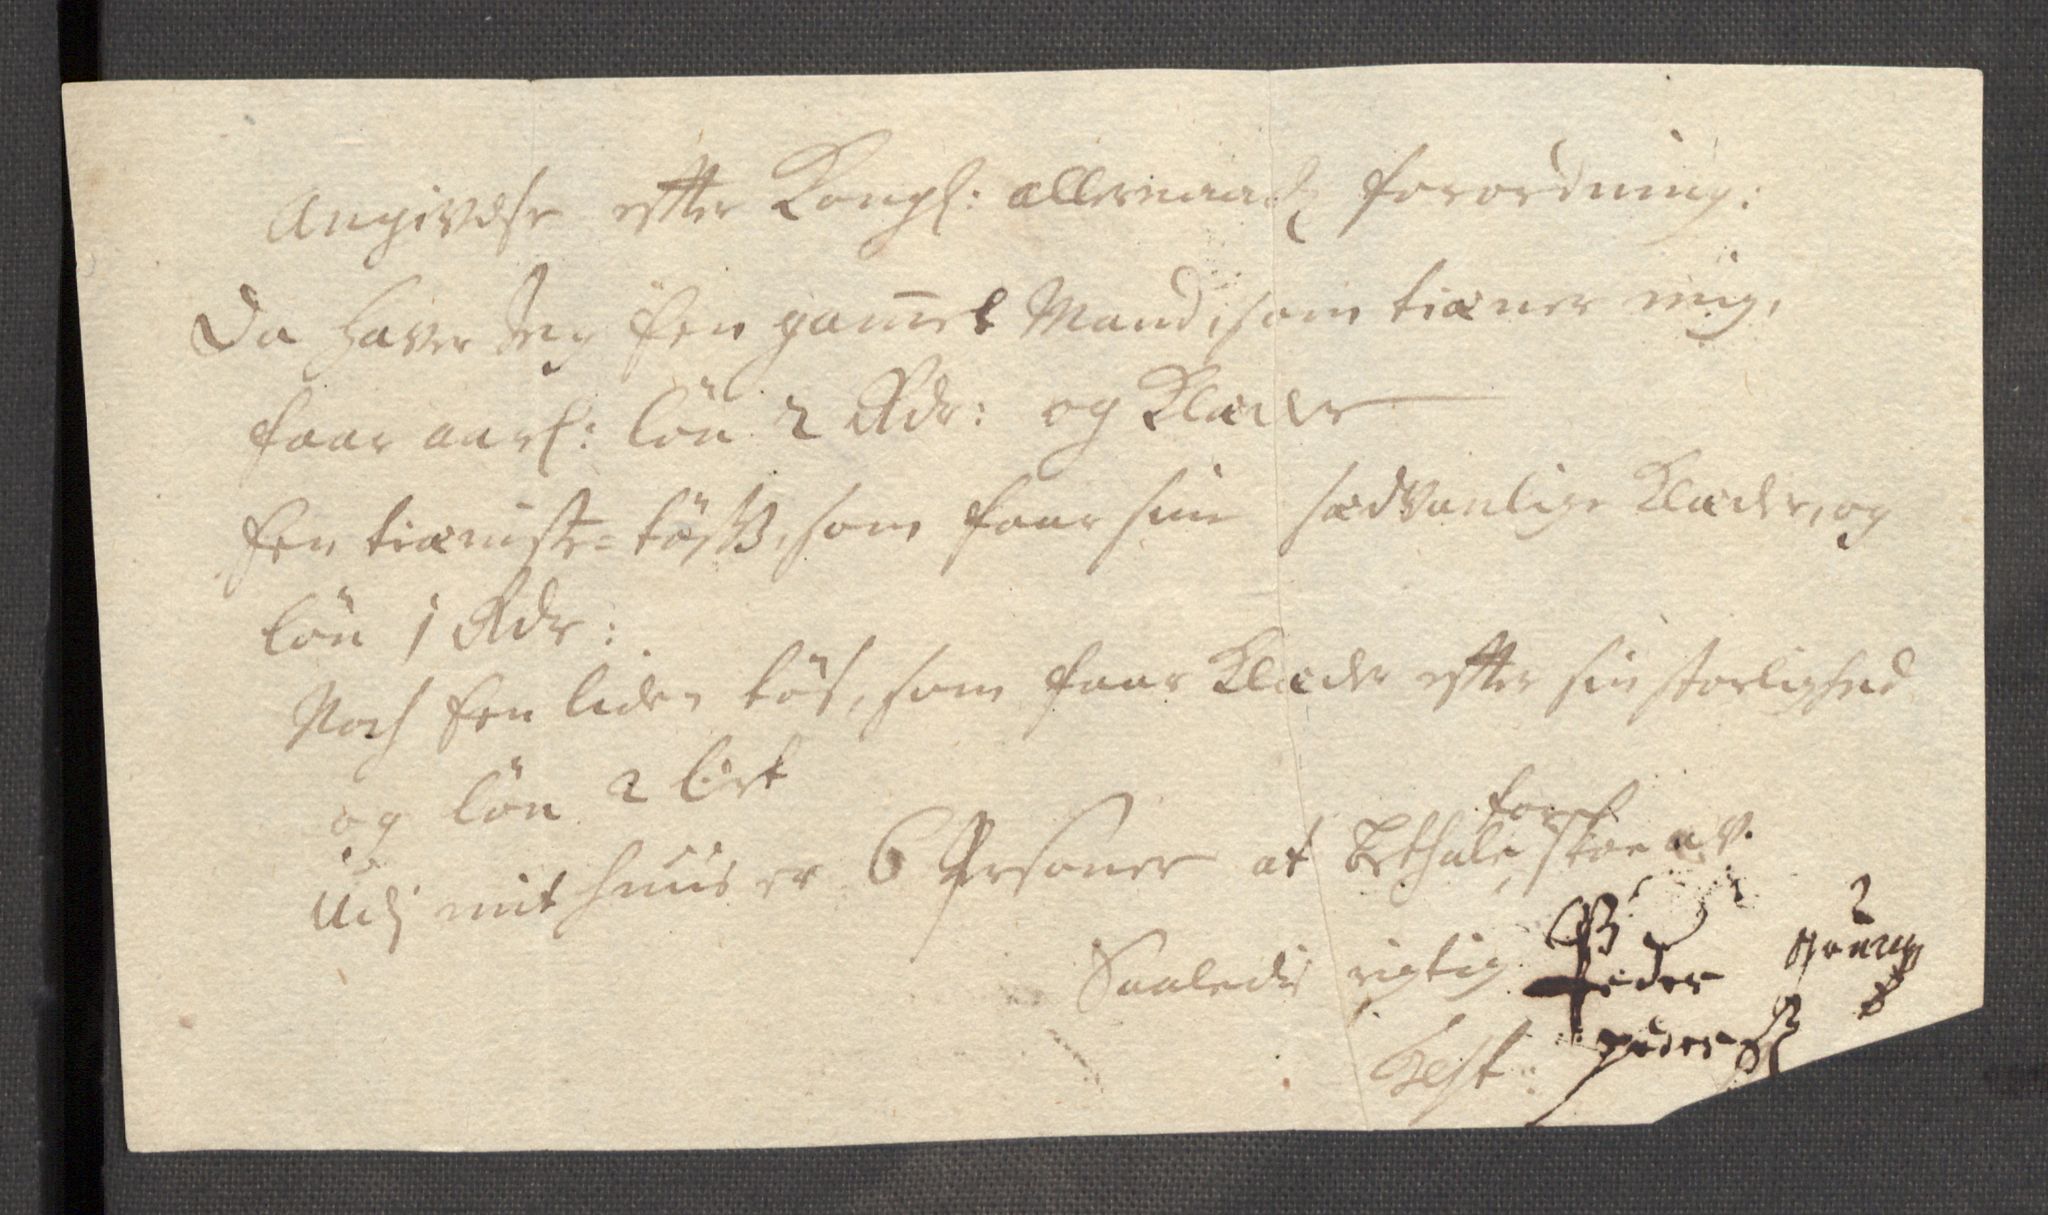 Angivelse efter Kongl: allernaad: forordning:
Da haver Jeg Een gam̄el Mand, som tiæner mig,
faar aarl: lön 2 Rdr: og Klæder
Een tiæniste=töss, som faar sine sædvanlige Klæder, og
lön 1 Rdr:
Noch Een liden tös, som faar Klæder efter sin storlighed
og lön 2 Ort
Udj mit huus er 6 Personer at bethale for skoe av.
Saaledis rigtig Peder
Test: